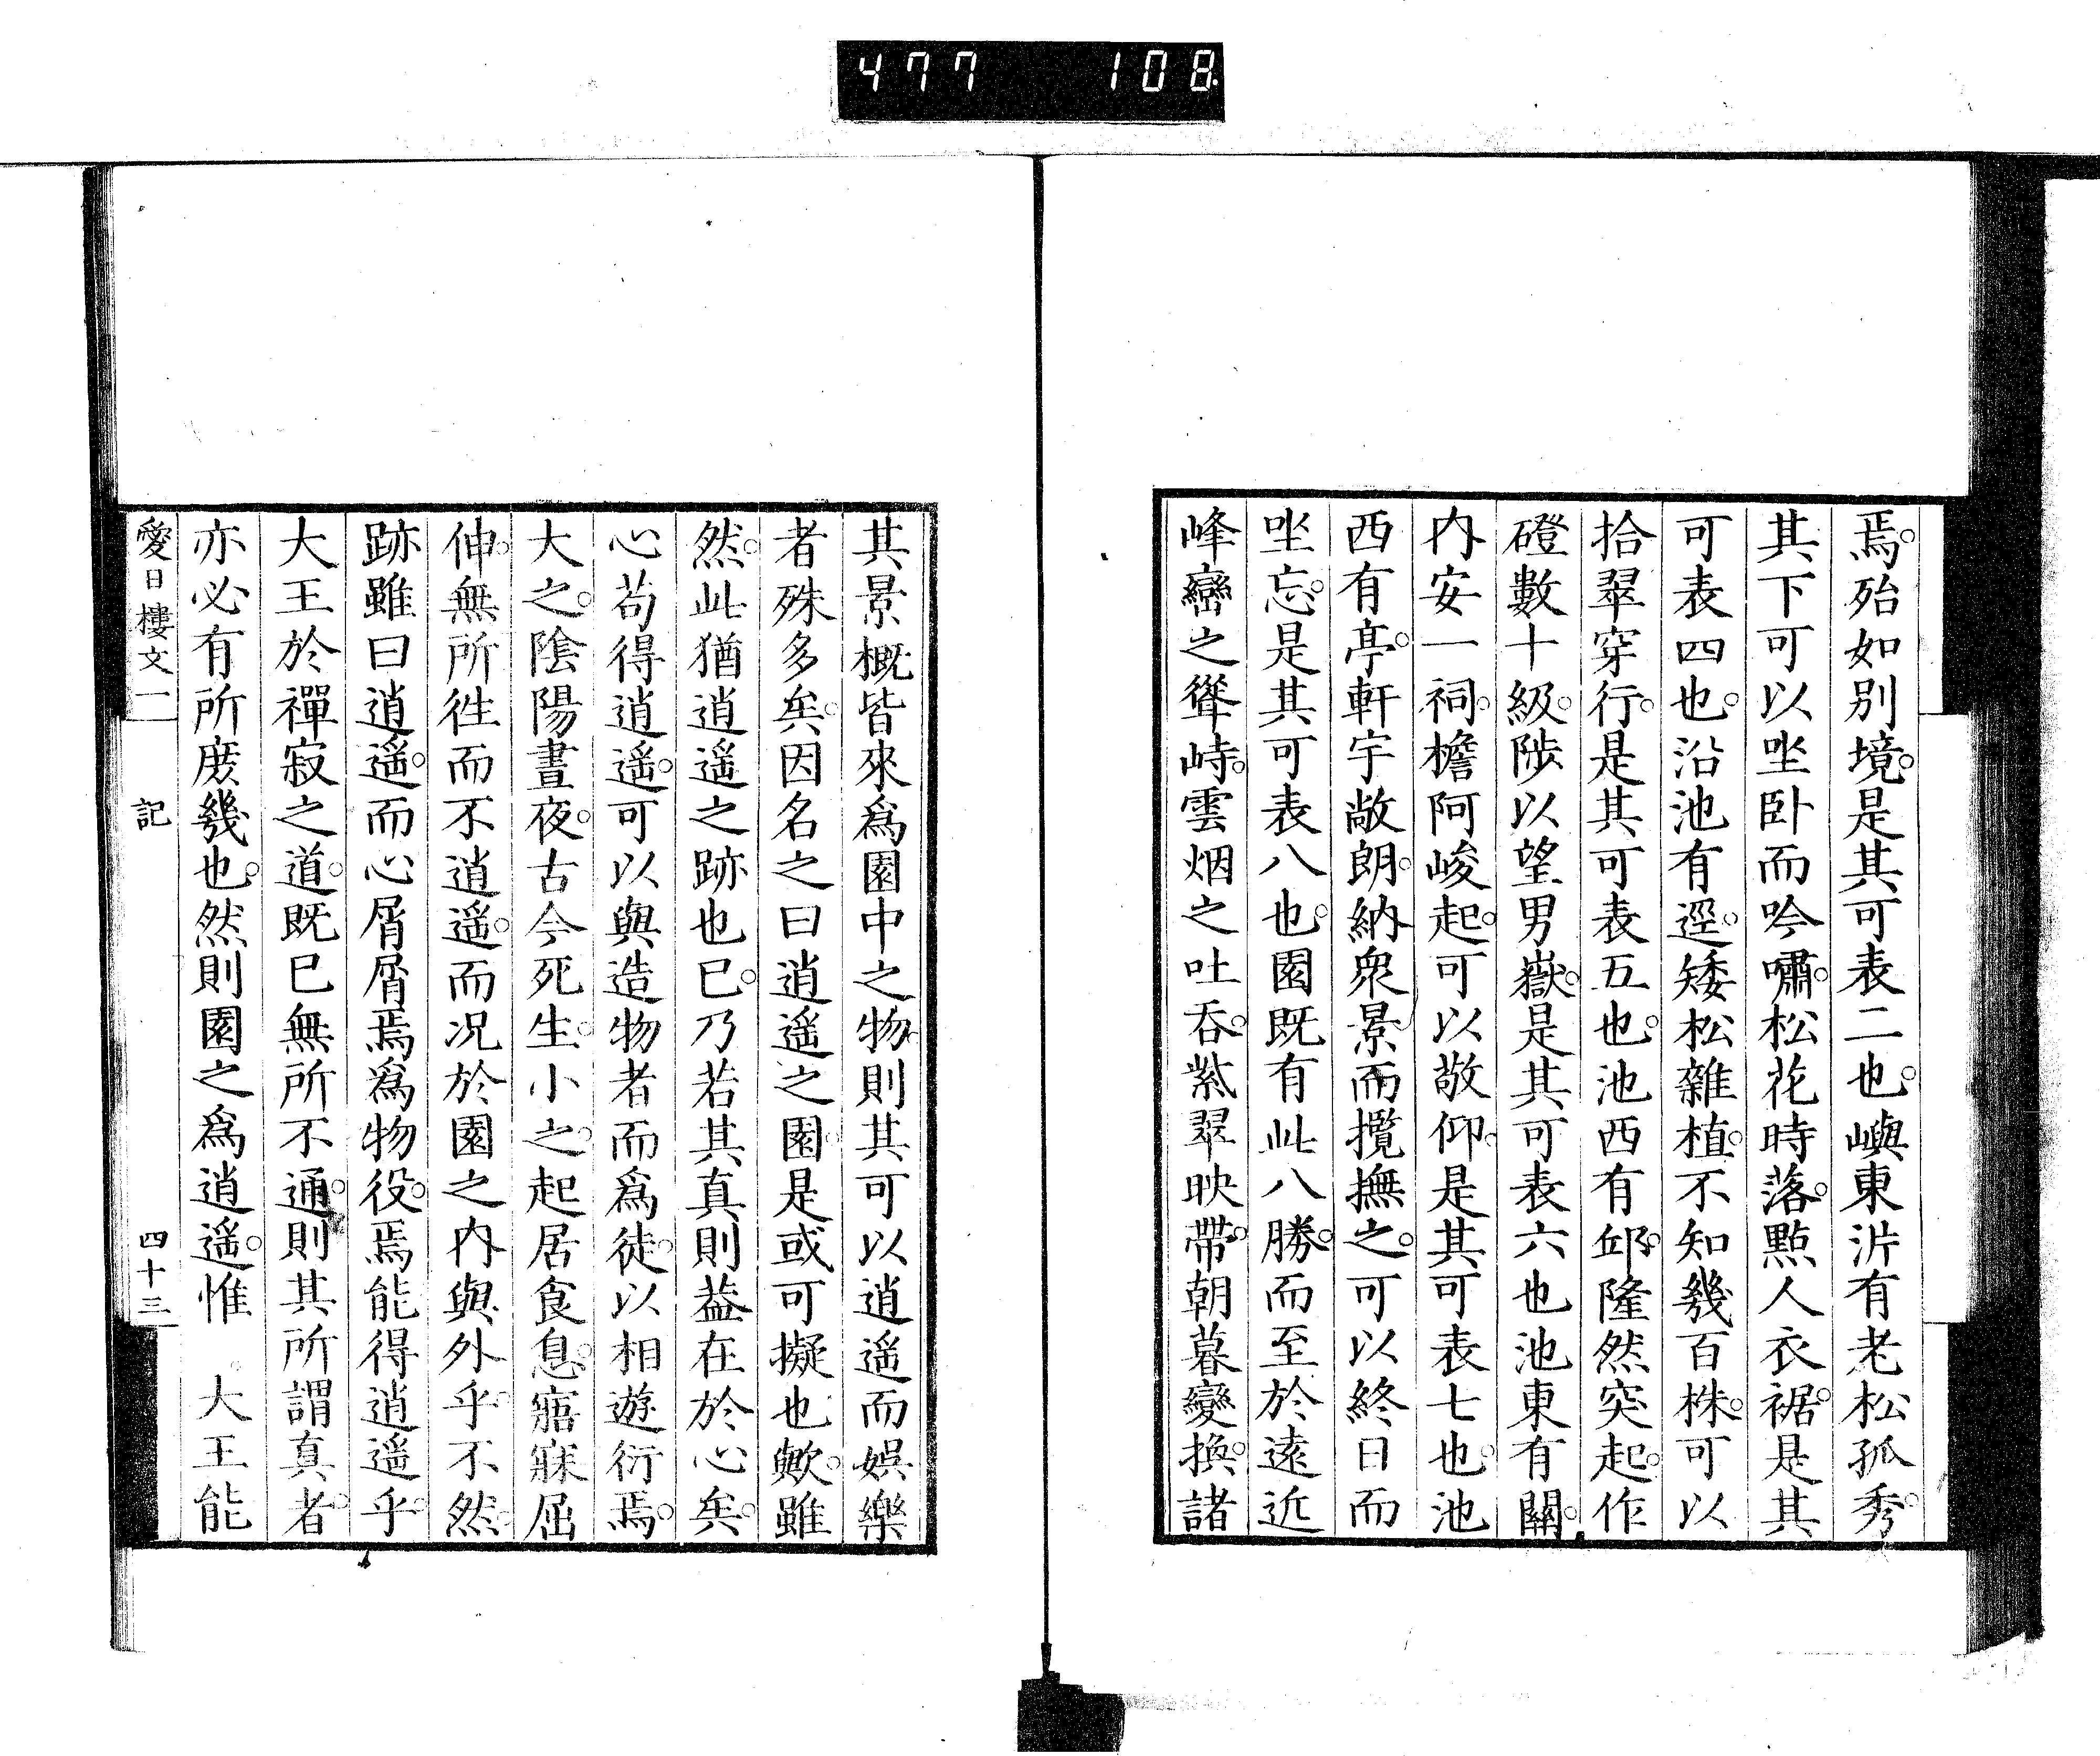 477 108
焉。殆如別境。是其可表二也。嶼東泝有老松孤秀。
其下可以坐臥而吟嘯。松花時落。點人衣裾。是其
可表四也。沿池有逕。矮松雜植。不知幾百株。可以
拾翠穿行。是其可表五也。池西有邱。隆然突起。作
磴數十級。陟以望男嶽。是其可表六也池東有關。
內安一祠。檐阿峻起。可以敬仰。是其可表七也。池
西有亭。軒宇敞朗。納衆景而攬撫之。可以終日而
坐忘。是其可表八也。園既有此八勝。而至於遠近
峰巒之聳峙。雲烟之吐吞。紫翠映帶。朝暮變換。諸
其景概皆來爲園中之物。則其可以逍遙而娛樂
者殊多矣。因名之曰逍遙之園。是或可擬也歟。雖
然。此猶逍遙之跡也已。乃若其真則益在於心矣。
心苟得逍遙。可以與造物者而爲徒。以相遊衍焉。
大之。陰陽晝夜。古今死生。小之。起居食息。寤寐屈
伸。無所往而不逍遙。而況於園之內與外乎。不然。
跡雖曰逍遙。而心屑屑焉爲物役。焉能得逍遙乎。
大王於禪寂之道。既已無所不通。則其所謂真者。
亦必有所庶幾也。然則園之爲逍遙。惟　大王能
愛日樓文一　記　四十三